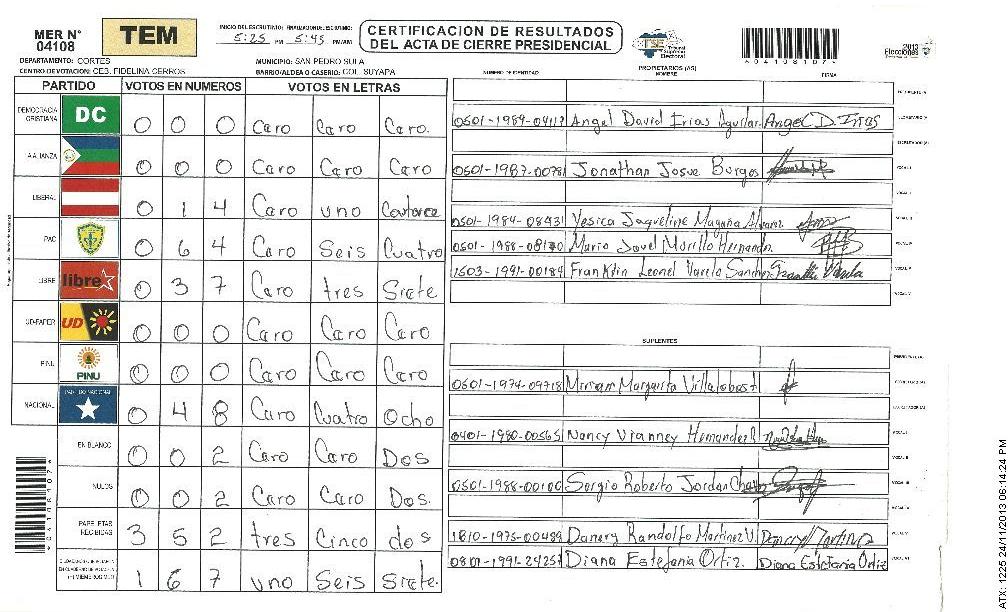 MER N° 04108
TEM
INICIO DEL ESCRUTINIO: FINALIZACION DEL ESCRUTINIO:
5:25 PM 5:45 PM/AM
CERTIFICACION DE RESULTADOS
DEL ACTA DE CIERRE PRESIDENCIAL
TSE Tribunal Supremo Electoral
*04108107*
2013 Elecciones
DEPARTAMENTO: CORTES
MUNICIPIO: SAN PEDRO SULA
CENTRO DE VOTACION: CEB. FIDELINA CERROS
BARRIO/ALDEA O CASERIO: COL. SUYAPA
PARTIDO VOTOS EN NUMEROS VOTOS EN LETRAS
DEMOCRACIA CRISTIANA DC 0 0 0 Caro Caro Caro.
ALIANZA 0 0 0 Caro Caro Caro
LIBERAL 0 1 4 Caro uno Catorce
PAC 0 6 4 Caro Seis Cuatro
LIBRE libre 0 3 7 Caro tres Siete
UD-FAPER UD 0 0 0 Caro Caro Caro
PINU PINU 0 0 0 Caro Caro Caro
NACIONAL PARTIDO NACIONAL 0 4 8 Caro Cuatro Ocho
EN BLANCO 0 0 2 Caro Caro Dos
NULOS 0 0 2 Caro Caro Dos.
PAPELETAS RECIBIDAS 3 5 2 tres Cinco dos
1 6 7 uno Seis Siete.
*04108107*
NUMERO DE IDENTIDAD
PROPIETARIOS (AS)
NOMBRE
FIRMA
0501-1989-04117 Angel David Erias Aguilar Angel D. Erias
0501-1987-00781 Jonathan Josue Burgos
0501-1984-08431 Yesica Jaqueline Magaña Alvarez
0501-1988-08170 Mario Jovel Murillo Hernandez
1503-1991-00189 Franklin Leonel Varela Sanchez Franklin Varela
SUPLENTES
0501-1974-09718 Miriam Margarita Villalobos
0401-1980-00565 Nancy Vianney Hernandez
0501-1988-00100 Sergio Roberto Jordan
1810-1975-00489 Danery Randolfo Martinez V. Danery Martinez
0801-1991-24257 Diana Estefania Ortiz. Diana Estefania Ortiz
ATX: 1225 24/11/2013 06:14:24 PM